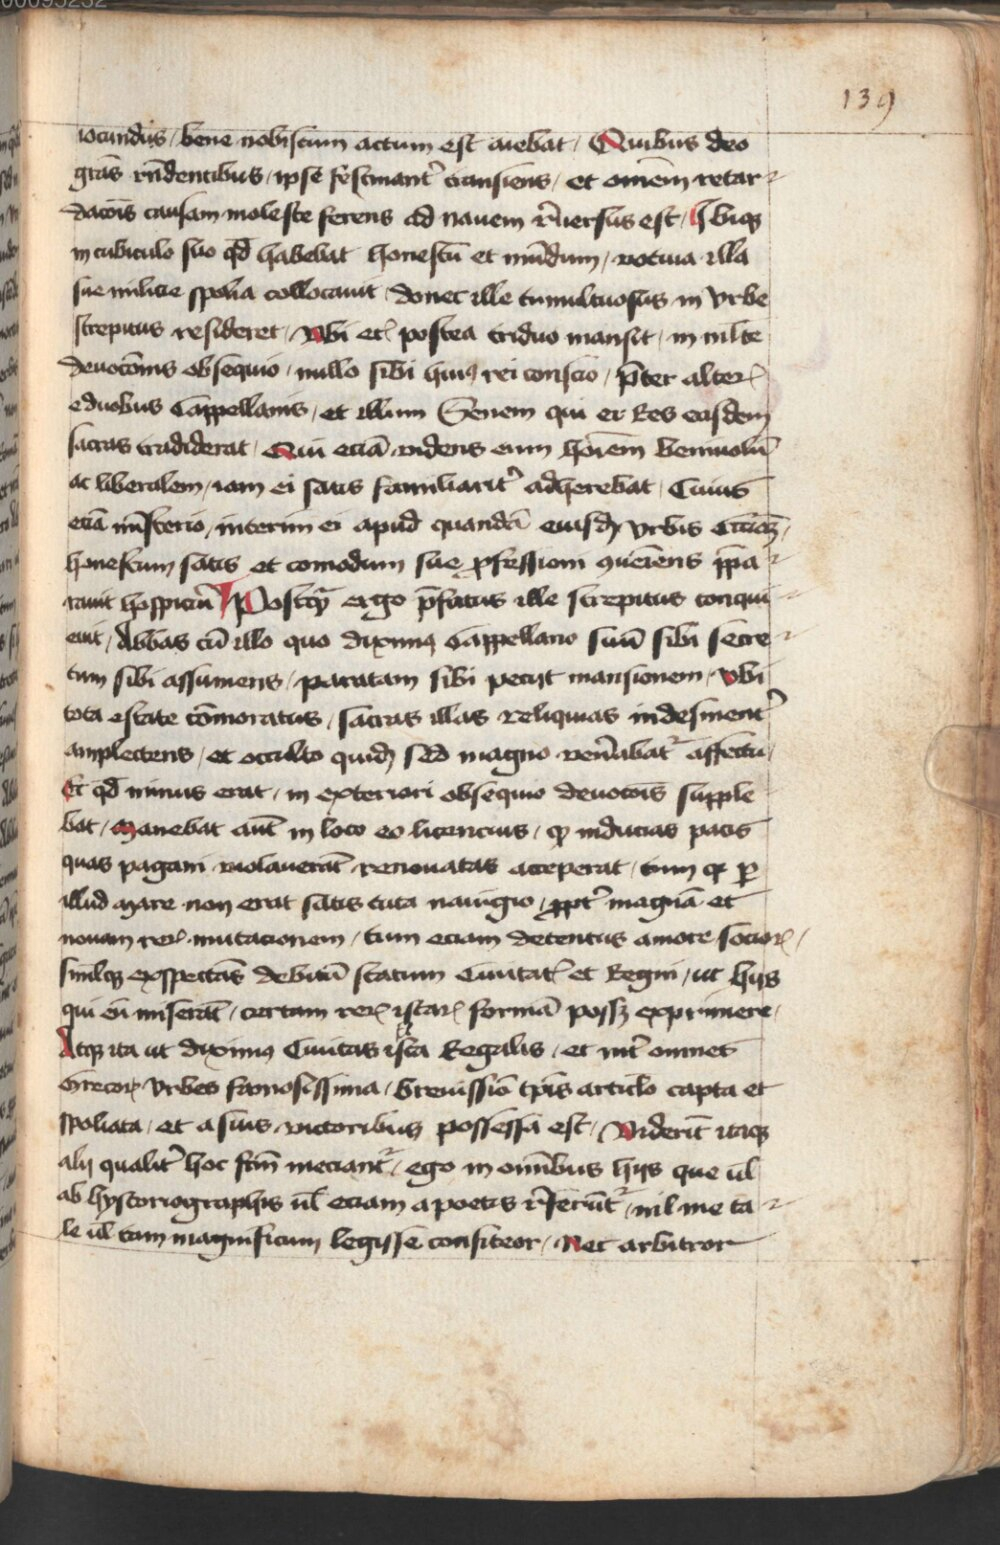 00095252
139
iocundus / bene nobiscum actum est aiebat / Quibus deo
grās rn̄dentibus / ipse festinant᷑ transiens / et omēm retar-
dacōis causam moleste ferens ad nauem r̄uersus est / Ibiqȝ
in cubiculo suo qd̄ habebat honestū et mūdum / votiua illa
sue milicie spolia collocauit / donec ille tumultuosus in vrbe
strepitus resideret / vbi et᷑ postea triduo mansit / in mlte
deuocōnis obsequio / nullo sibi huiꝰ rei conscio / p̄ter alterꝝ
e duobus Cappellanis / et illum Senem qui ei Res easdem
sacras tradiderat / Qui eciā videns eum hoiēm beniuolū
ac liberalem / iam ei satis familiarit᷑ adherebat / Cuius
eciā mīsterio / interim ei apud quandā eiusdȝ vrbis Ecciāȝ /
honestum satis et comodum sue ꝓfessioni querens p̄pa-
rauit hospiciū Postqȝ ergo p̄fatus ille strepitus conqui-
euit / Abbas cū illo quo diximꝰ Cappellano suū sibi secre-
tum sibi assumens / paratam sibi pecijt mansionem / vbi
tota estate cōmoratus / sacras illas reliquias indesinent᷑
amplectens / et occulto quidȝ sed magno ven̄abat᷑ affectu /
Et qd̄ minus erat / in exteriori obsequio deuocōis supple
bat / Manebat aut̄ in loco eo licencius / ꝙ inducias pacis
quas pagani violauerāt renouatas acceperat / tum ꝙ ꝑ
illud mare non erat satis tuta nauigio / ꝓpt᷑ magnā et
nouam rerꝝ mutacionem / tum eciam detentus amore socioꝝ /
similqȝ exspectās debitū statum Ciuitat᷑ et Regni / ut hijs
qui eū miserāt / certam rerꝝ istarꝝ formā possȝ exprimere /
Atqȝ ita ut diximꝰ Ciuitas ista Regalis / et int᷑ omnes
Grecorꝝ vrbes famosissima / breuissiō tp̄is articlo capta et
spoliata / et a suis victoribus possessa est / Viderīt itaqȝ
alij qualit᷑ hoc fc̄m meciant᷑ / ego in omībus hijs que ul̄
ab hystoriographis ul̄ eciam a poetis r̄ferūt᷑ / nil me ta-
le ul̄ tam magnificum legisse confiteor / Nec arbitror